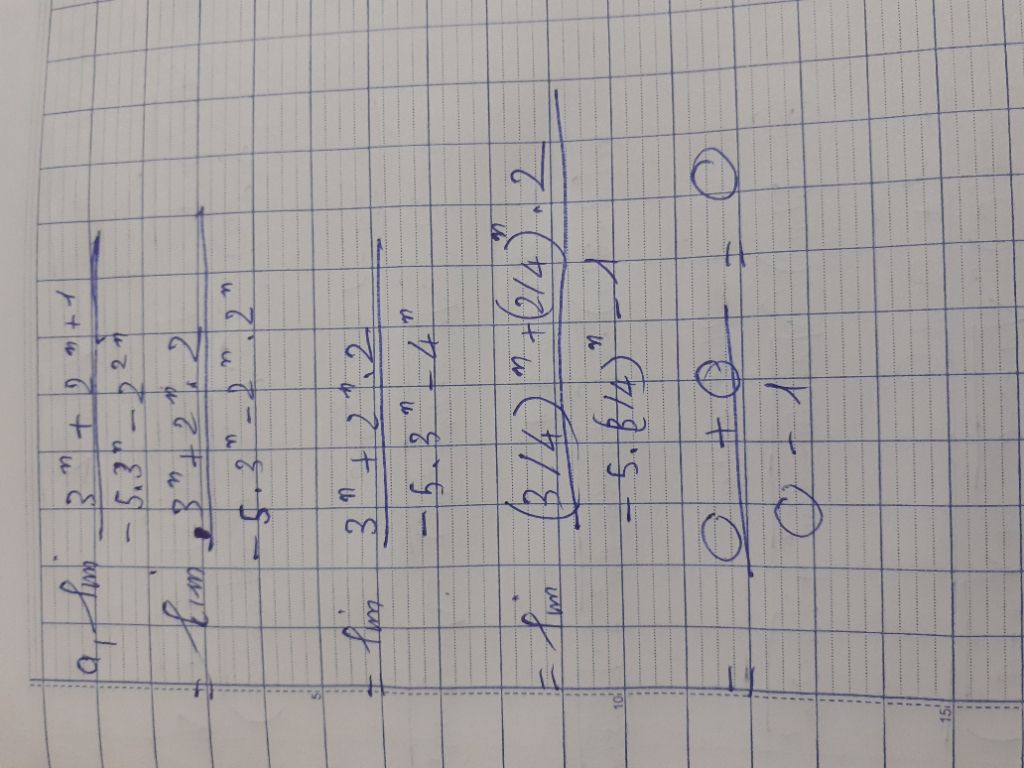 a, lim 3ⁿ + 2ⁿ⁺¹
- 5.3ⁿ - 2²ⁿ
= lim 3ⁿ + 2ⁿ.2
- 5.3ⁿ - 2ⁿ.2ⁿ
= lim 3ⁿ + 2ⁿ.2
- 5.3ⁿ - 4ⁿ
= lim (3/4)ⁿ + (2/4)ⁿ.2
- 5.(3/4)ⁿ - 1
= 0 + 0 = 0
0 - 1
5
10
15